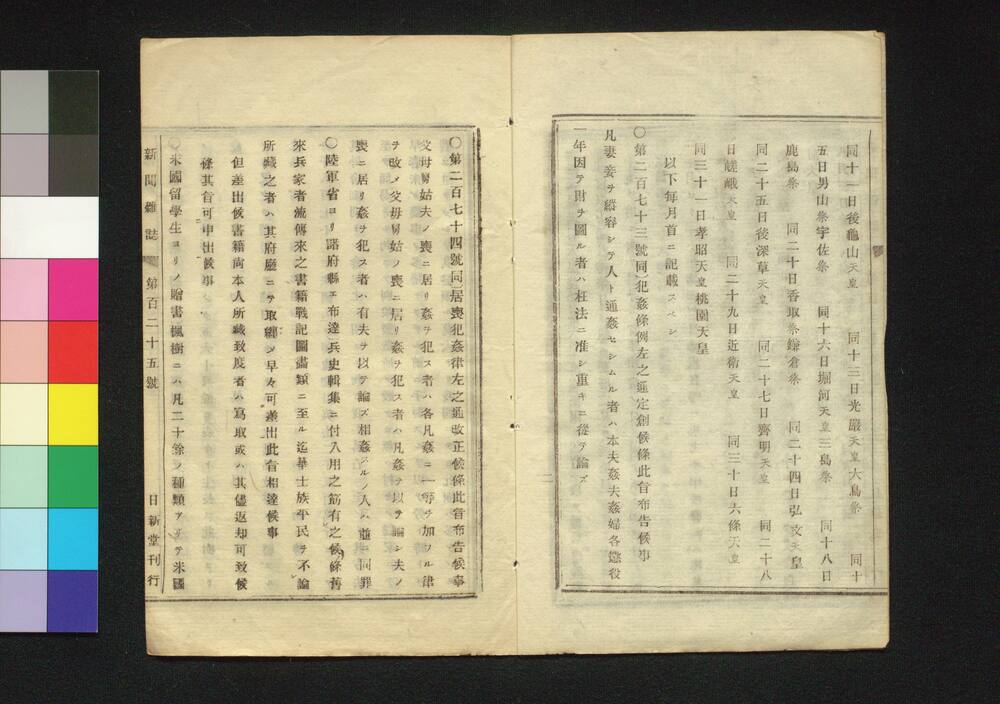 同十一日後龜山天皇　同十三日光嚴天皇大鳥祭　同十
五日男山祭宇佐祭　同十六日堀河天皇三島祭　同十八日
鹿島祭　同二十日香取祭鎌倉祭　同二十四日弘文天皇
同二十五日後深草天皇　同二十七日齊明天皇　同二十八
日嵯峨天皇　同二十九日近衛天皇　同三十日六條天皇
同三十一日孝昭天皇桃園天皇
以下每月首ニ記載スベシ
〇第二百七十三號同犯姦條例左之通定創候條此旨布告候事
凡妻妾ヲ縱容シテ人ト通姦セシムル者ハ本夫姦夫姦婦各懲役
一年因テ財ヲ圖ル者ハ枉法ニ准シ重キニ從テ論ズ
〇第二百七十四號同居喪犯姦律左之通改正候條此旨布告候事
父母舅姑夫ノ喪ニ居リ姦ヲ犯ス者ハ各凡姦ニ一等ヲ加フルノ律
ヲ改メ父母舅姑ノ喪ニ居リ姦ヲ犯ス者ハ凡姦ヲ以テ論シ夫ノ
喪ニ居リ姦ヲ犯ス者ハ有夫ヲ以テ論ズ相姦スルノ人ハ並ニ同罪
〇陸軍省ヨリ諸府縣エ布達兵史輯集ニ付入用之筋有之候條舊
來兵家者流傳來之書籍戰記圖畵類ニ至ル迄華士族平民ヲ不論
所藏之者ハ其府廳ニテ取纏メ早々可差出此旨相達候事
但差出候書籍尚本人所藏致度者ハ寫取或ハ其儘返却可致候
條其旨可申出候事
〇米國留學生ヨリノ贈書楓樹ニハ凡二十餘ノ種類アリテ米國
新聞雜誌　第百二十五號　日新堂刊行